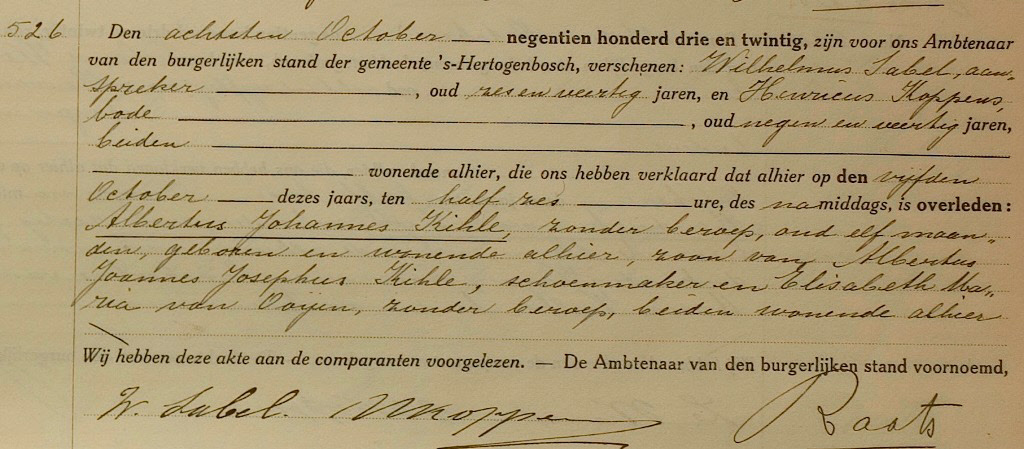 526 Den achtsten October negentien honderd drie en twintig, zijn voor ons Ambtenaar
van den burgerlijken stand der gemeente 's-Hertogenbosch, verschenen: Wilhelmus Sabel, aan-
spreker, oud zes en veertig jaren, en Henricus Koppens,
bode, oud negen en veertig jaren,
beiden
wonende alhier, die ons hebben verklaard dat alhier op den vijfden
October dezes jaars, ten half zes ure, des namiddags, is overleden:
Albertus Johannes Kihle, zonder beroep, oud elf maan-
den, geboren en wonende alhier, zoon van Albertus
Joannes Josephus Kihle, schoenmaker en Elisabeth Ma-
ria van Ooijen, zonder beroep, beiden wonende alhier
Wij hebben deze akte aan de comparanten voorgelezen. — De Ambtenaar van den burgerlijken stand voornoemd,
W. Sabel. Raats